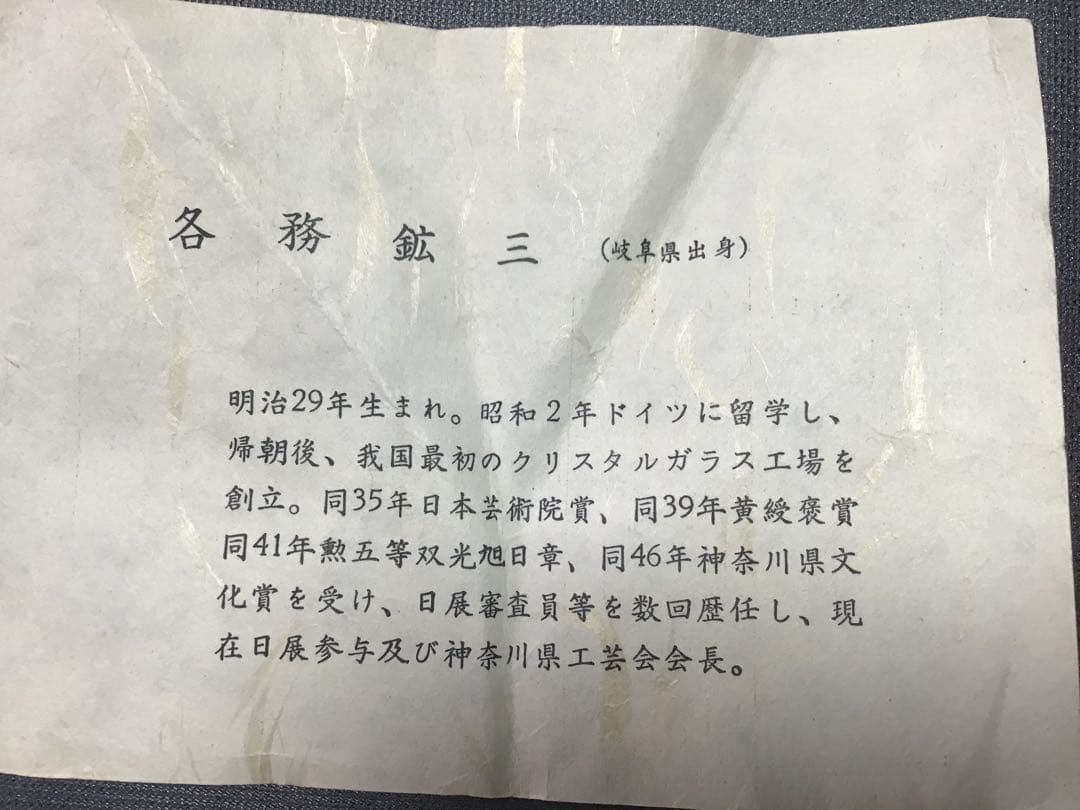 各務鉱三（岐阜県出身）
明治29年生まれ。昭和２年ドイツに留学し、
帰朝後、我国最初のクリスタルガラス工場を
創立。同35年日本芸術院賞、同39年黄綬褒賞
同41年勲五等双光旭日章、同46年神奈川県文
化賞を受け、日展審査員等を数回歴任し、現
在日展参与及び神奈川県工芸会会長。